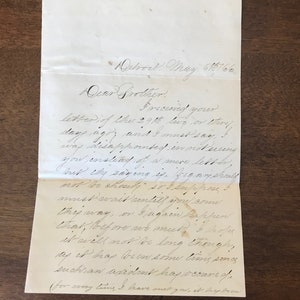 Detroit May 5th 66
Dear Brother
I received your
letter of the 29th two or three
days ago, and I must say I
was disappointed in not seeing
you instead of a mere letter,
but the saying is
not be
must wait until you come
this way, or I again
that, before we meet. I hope
it will not be long though,
as it has been some time since
such an has occured.
for any time I have met you at